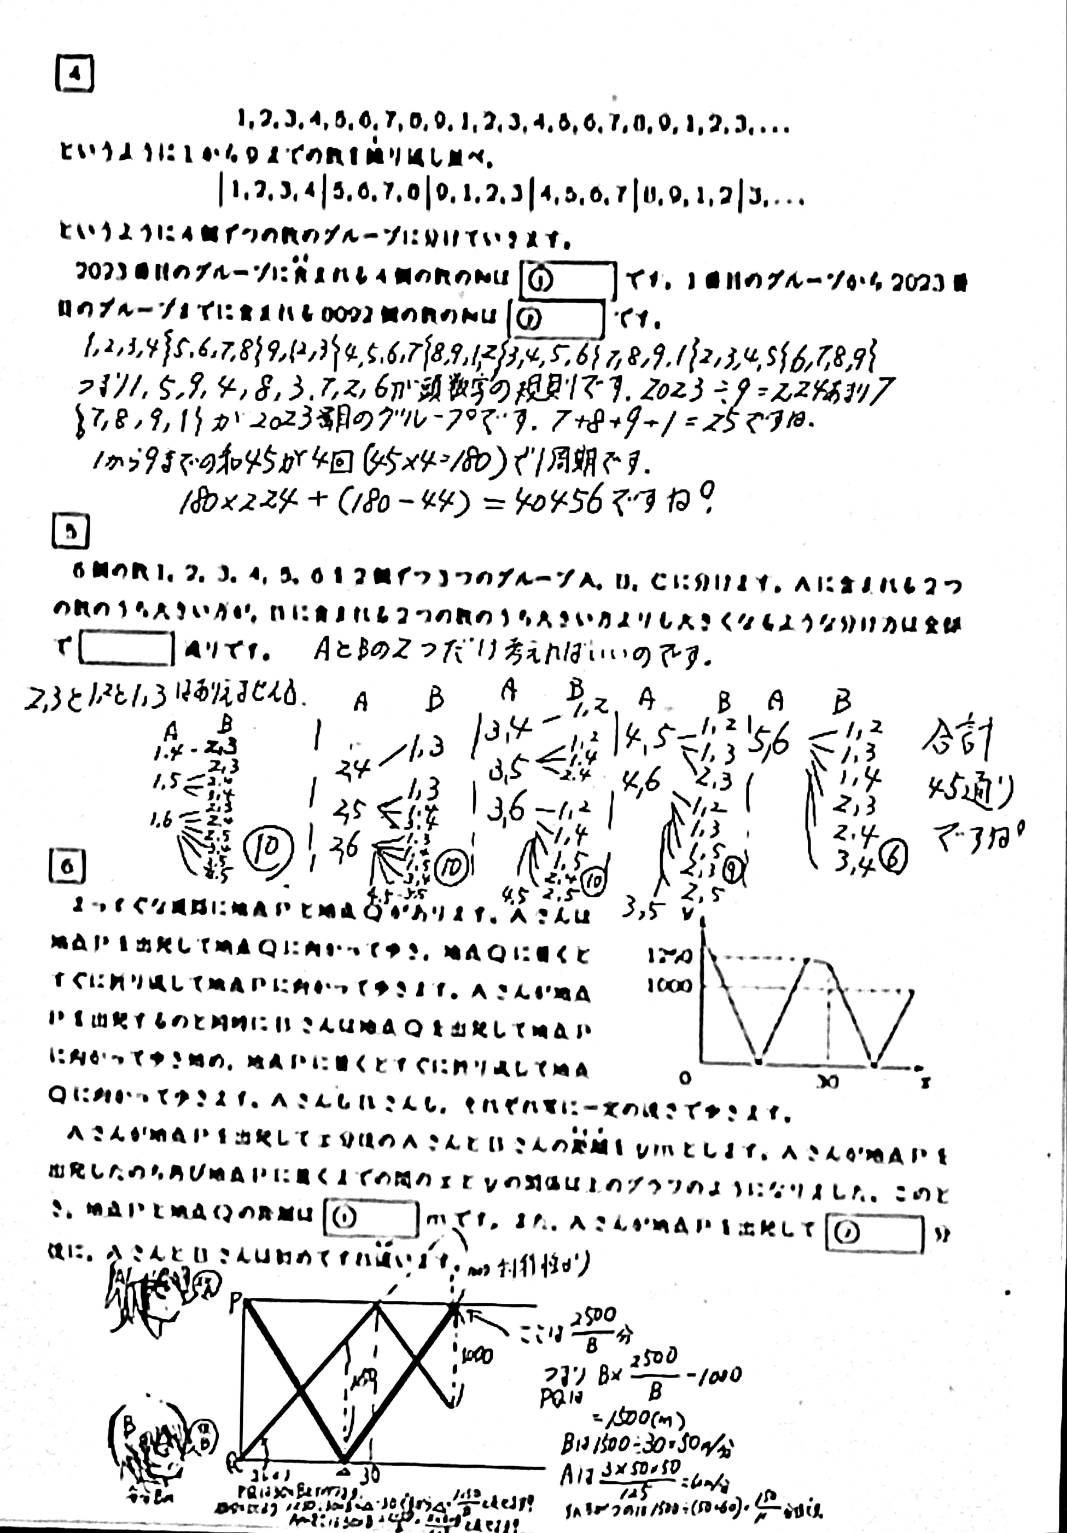 4
1,2,3,4,5,6,7,8,9,1,2,3,4,5,6,7,8,9,1,2,3,...
というように1から9までの数を繰り返し並べ,
|1,2,3,4|5,6,7,8|9,1,2,3|4,5,6,7|8,9,1,2|3,...
というように4個ずつの数のグループに分けていきます。
2023番目のグループに含まれる4個の数の和は ① です。1番目のグループから2023番
目のグループまでに含まれる8092個の数の和は ② です。
1,2,3,4}5,6,7,8}9,1,2,3}4,5,6,7{8,9,1,2}3,4,5,6}7,8,9,1}2,3,4,5{6,7,8,9}
つまり1,5,9,4,8,3,7,2,6が頭数字の規則です.2023÷9=224あまり7
{7,8,9,1}が2023番目のグループです.7+8+9+1=25ですね.
1から9までの和45が4回(45×4=180)で1周期です.
180×224+(180-44)=40456ですね。
5
6個の数1,2,3,4,5,6を2個ずつ3つのグループA,B,Cに分けます。Aに含まれる2つ
の数のうち大きい方が,Bに含まれる2つの数のうち大きい方よりも大きくなるような分け方は全部
で 通りです。 AとBの2つだけ考えればいいのです.
2,3と1,2と1,3はありえません.
A B
1,4-2,3
1,5 2,3 2,4 3,4
1,6 2,3 2,4 2,5 3,4 3,5 4,5
⑩
A B
2,4 1,3
2,5 1,3 1,4 3,4
2,6 1,3 1,4 1,5 3,4 3,5 4,5
⑩
A B
3,4-1,2
3,5 1,2 1,4 2,4
3,6-1,2 1,4 1,5 2,4 2,5 4,5
⑩
A B
4,5 1,2 1,3 2,3
4,6 1,2 1,3 1,5 2,3 2,5 3,5
⑨
A B
5,6 1,2 1,3 1,4 2,3 2,4 3,4
⑥
合計
45通り
ですね。
6
まっすぐな道路に地点Pと地点Qがあります。Aさんは
地点Pを出発して地点Qに向かって歩き,地点Qに着くと
すぐに折り返して地点Pに向かって歩きます。Aさんが地点
Pを出発するのと同時にBさんは地点Qを出発して地点P
に向かって歩き始め,地点Pに着くとすぐに折り返して地点
Qに向かって歩きます。AさんもBさんも,それぞれ常に一定の速さで歩きます。
y
1250
1000
0
30
x
Aさんが地点Pを出発してx分後のAさんとBさんの距離をymとします。Aさんが地点Pを
出発したのち再び地点Pに着くまでの間のxとyの関係は上のグラフのようになりました。このと
き,地点Pと地点Qの距離は ① mです。また,Aさんが地点Pを出発して ② 分
後に,AさんとBさんは初めてすれ違います。
対称性から
P
1250
1000
30
ここは 2500/B 分
つまり
PQは B×2500/B-1000
=1500(m)
Bは1500÷30=50m/分